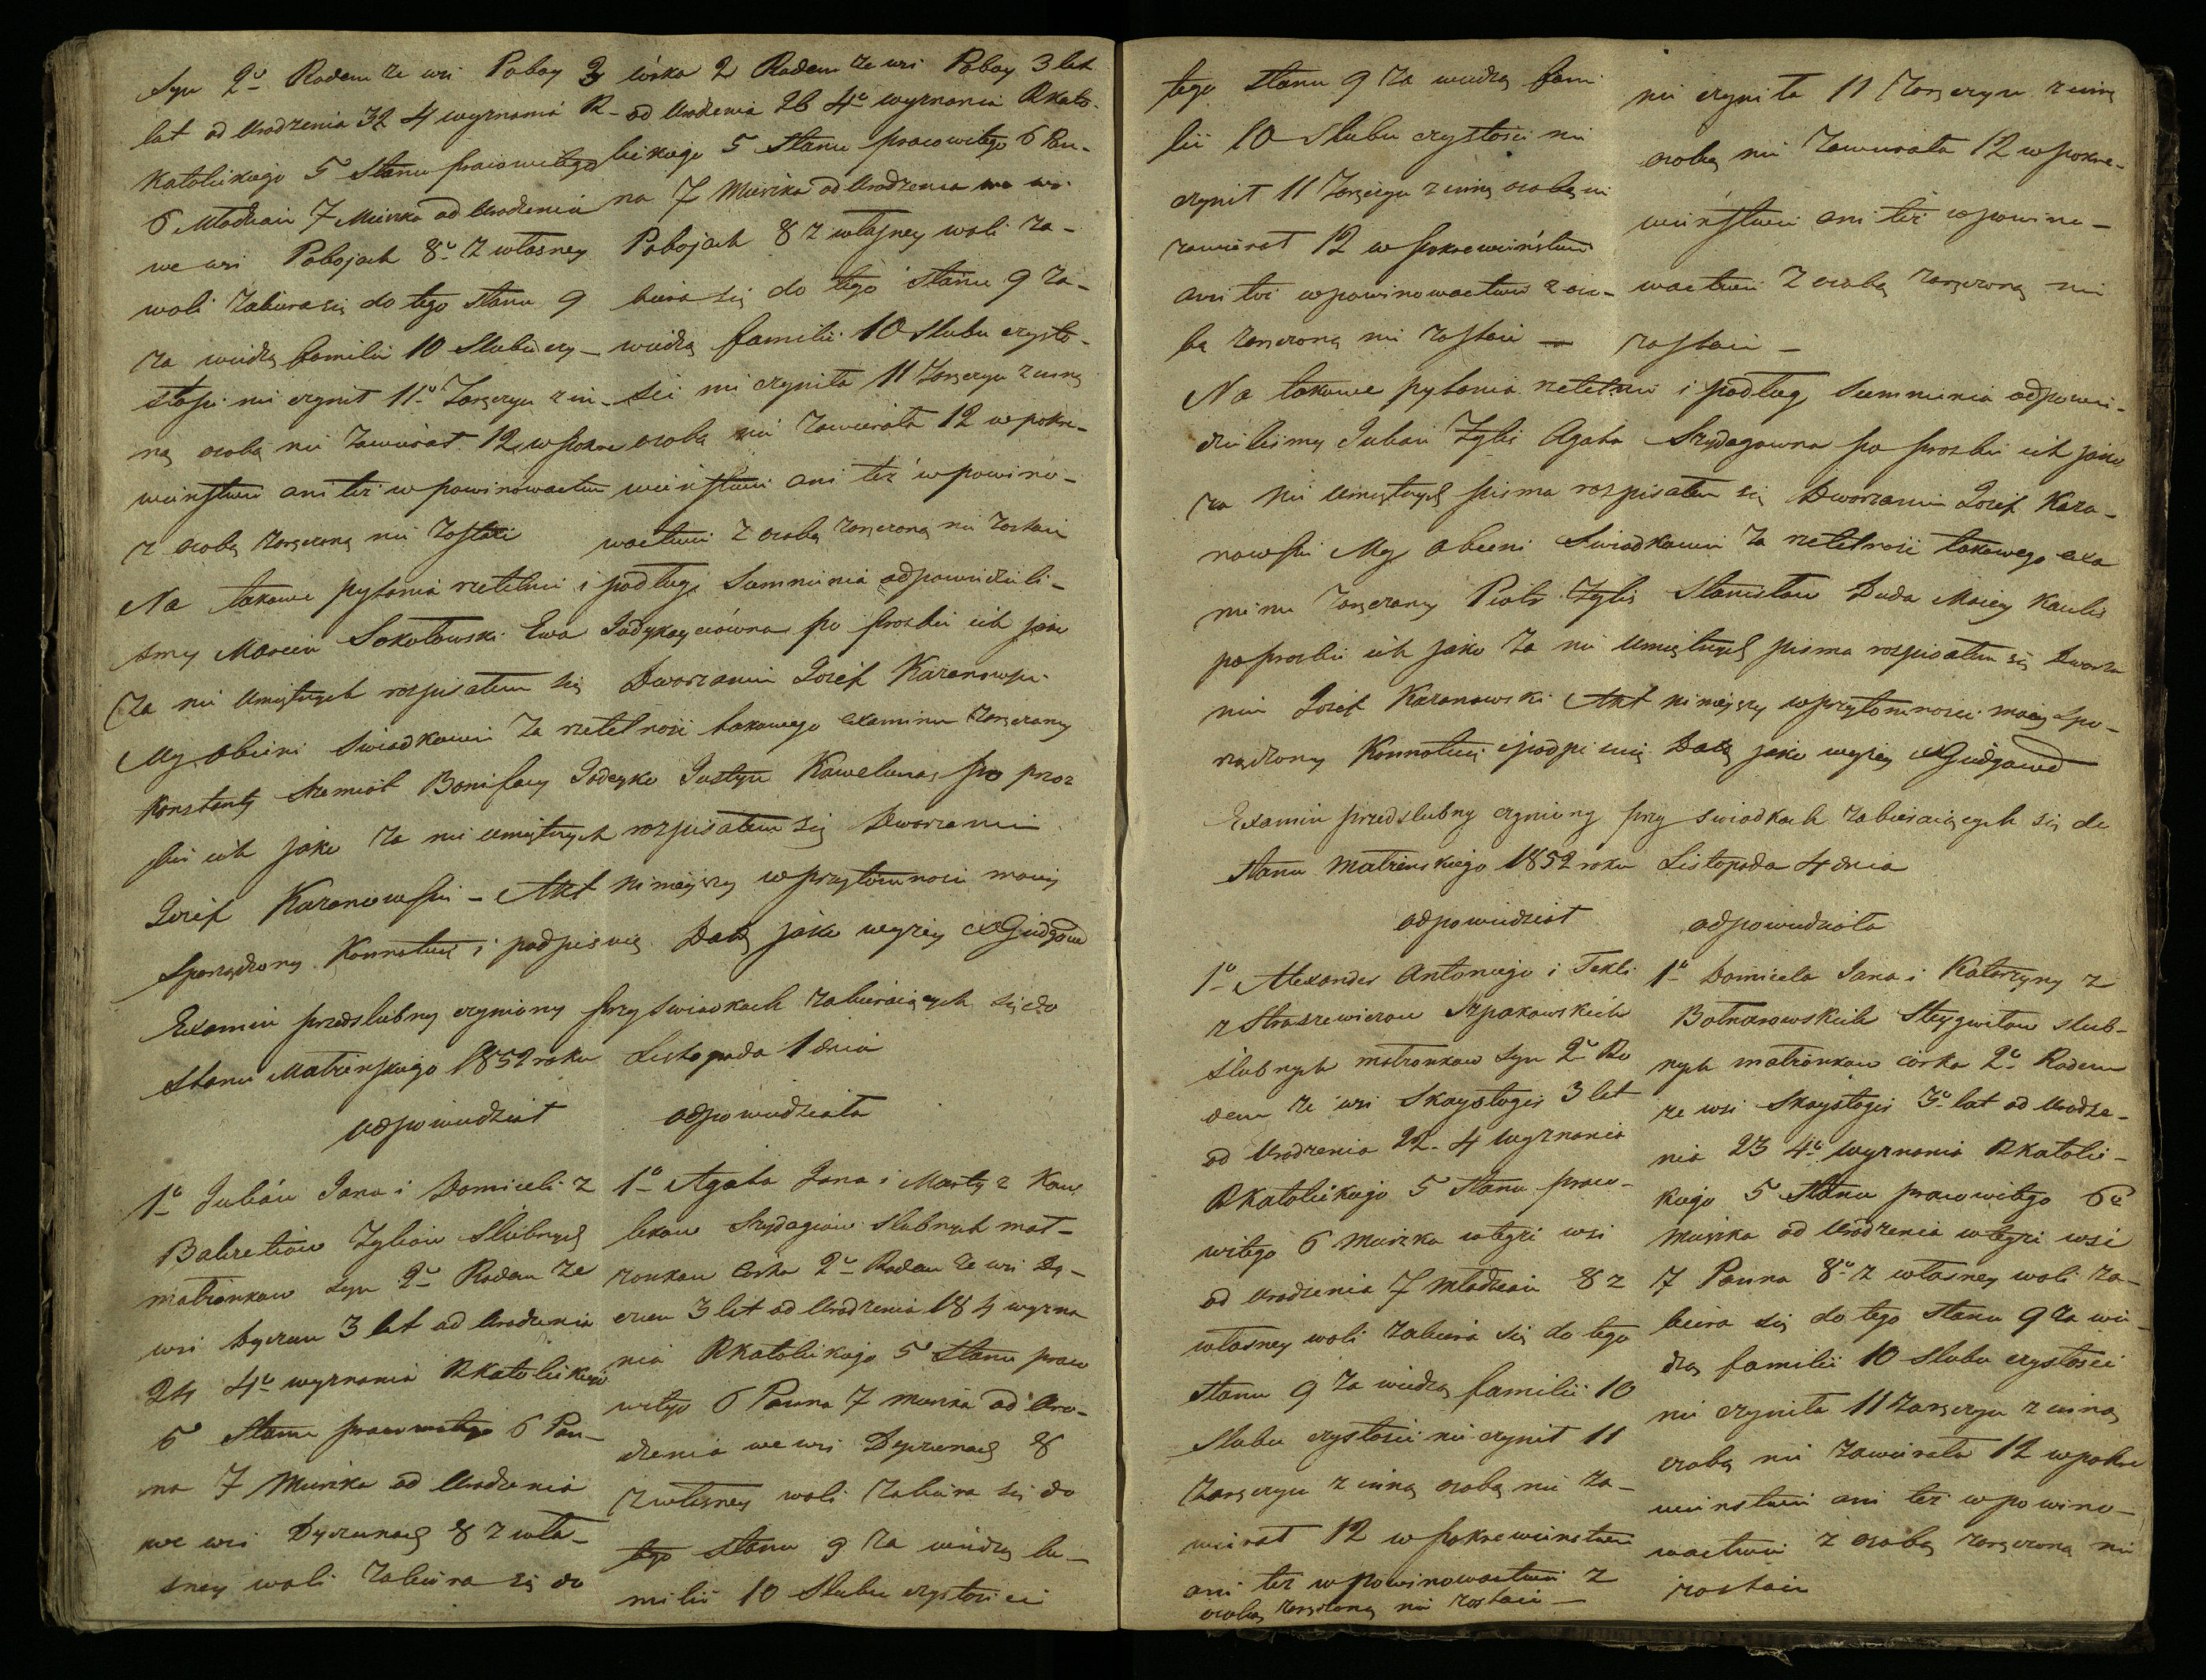 Syn 2º Rodem ze wsi Poboy 3
lat od Urodzenia 32 4 wyznania R-
Katolickiego 5 Stanu pracowitego
6 Młodzian 7 Mieszka od Urodzenia
we wsi Pobojach 8º z własney
woli zabiera się do tego stanu 9
za wiedzą familii 10 Slubu czy-
stości nie czynił 11º Zaręczyn z in-
ną osobą nie zawierał 12 w pokre
wieństwie ani też w powinowactwie
z osobą zaręczoną nie zostaie
córka 2 Rodem ze wsi Poboy 3 lat
od Urodzenia 26 4º wyznania RKato-
lickiego 5 Stanu pracowitego 6 Pan-
na 7 Mieszka od Urodzenia we wsi
Pobojach 8 z własney woli za-
biera się do tego stanu 9 za-
wiedzą familii 10 Slubu czysto-
ści nie czyniła 11 Zaręczyn z inną
osobą nie zawierała 12 w pokre-
wieństwie ani też w powino-
wactwie z osobą zaręczoną nie zostaie
Na takowe pytania rzetelnie i podług Sumnienia odpowiedzieli-
smy Marcin Sokołowski Ewa po prozbie ich jako
za nie Umiętnych rozpisałem się Dworzanin Jozef Karanowski
My obecni Swiadkowie za rzetelność takowego examinu zaręczamy
Konstanty Szemiot Bonifacy Jodeyko Justyn po proz
bie ich jako za nie umiętnych rozpisałem się Dworzanin
Jozef Karanowski - Akt ninieyszy w przytomnosci moiey
Sporządzony Konnotuię i podpisuię. Datą jako wyżey
Examin przedslubny czyniony przy Swiadkach zabieraiących się do
Stanu Małżenskiego 1852 roku Listopada 1 dnia
odpowiedział
1º Julian Jana i Domiceli z
Żylisow Slubnych
małżonkow syn 2º Rodem ze
wsi Dyrzun 3 lat od Urodzenia
24 4º wyznania RKatolickiego
5 Stanu pracowitego 6 Pan-
na 7 Mieszka od Urodzenia
we wsi Dyrzunach 8 z wła-
sney woli zabiera się do
odpowiedziała
1º Agata Jana i Marty z Kow
Szydagiow slubnych mał-
żonkow Corka 2º Rodem ze wsi Dy-
rzun 3 lat od Urodzenia 18 4 wyzna
nia RKatolickiego 5 Stanu praco
witego 6 Panna 7 mieszka od Uro-
dzenia we wsi Dyrzunach 8
z własney woli zabiera się do
tego stanu 9 za wiedzą fa-
milii 10 Slubu czystosci
tego stanu 9 za wiedzą fami
lii 10 Slubu czystości nie
czynił 11 Zaręczyn z inną osobą nie
zawierał 12 w pokrewieństwie
ani też w powinowactwie z oso-
bą zaręczoną nie zostaie —
nie czyniła 11 Zaręczyn z inną
osobą nie zawierała 12 w pokre-
wieństwie ani też w powino-
wactwie z osobą zaręczoną nie
zostaie —
Na takowe pytania rzetelnie i podług Sumnienia odpowie-
dzieliśmy Julian Żylis Agata Szydagowna po prozbie ich jako
za nie umiętnych pisma rozpisałem się Dworzanin Jozef Kara-
nowski My obecni Swiadkowie za rzetelność takowego exa
minu zaręczamy Piotr Żylis Stanisław Duda Maciey Kaulis
po prozbie ich jako za nie umiętnych pisma rozpisałem się Dworza
nin Jozef Karanowski Akt ninieyszy w przytomnosci moiey Spo-
rządzony Konnotuię i podpisuię Datą jako wyżey
Examin przedslubny czyniony przy swiadkach zabieraiących się do
stanu Małżenskiego 1852 roku Listopada 4 dnia
odpowiedział
1º Alexander Antoniego i Tekli
z Straszewiczow Szpakowskich
Slubnych małżonkow syn 2º Ro
dem ze wsi Skaystogir 3 lat
od Urodzenia 22 4 wyznania
RKatolickiego 5 Stanu praco-
witego 6 mieszka w teyże wsi
od Urodzenia 7 Młodzian 8 z
własney woli zabiera się do tego
stanu 9 za wiedzą familii 10
Slubu czystości nie czynił 11
Zaręczyn z inną osobą nie za-
wierał 12 w pokrewieństwie
ani też w powinowactwie z
osobą zaręczoną nie zostaie —
odpowiedziała
1º Domicela Jana i Katarzyny z
Steygwiłow slub-
nych małżonkow córka 2º Rodem
ze wsi Skaystogir 3º lat od Urodze-
nia 23 4º wyznania RKatolic-
kiego 5 Stanu pracowitego 6º
mieszka od Urodzenia w teyże wsi
7 Panna 8º z własney woli za-
biera się do tego stanu 9 za wie-
dzą familii 10 slubu czystości
nie czyniła 11 Zaręczyn z inną
osobą nie zawierała 12 w pokre
wienstwie ani też w powino-
wactwie z osobą zaręczoną nie
zostaie